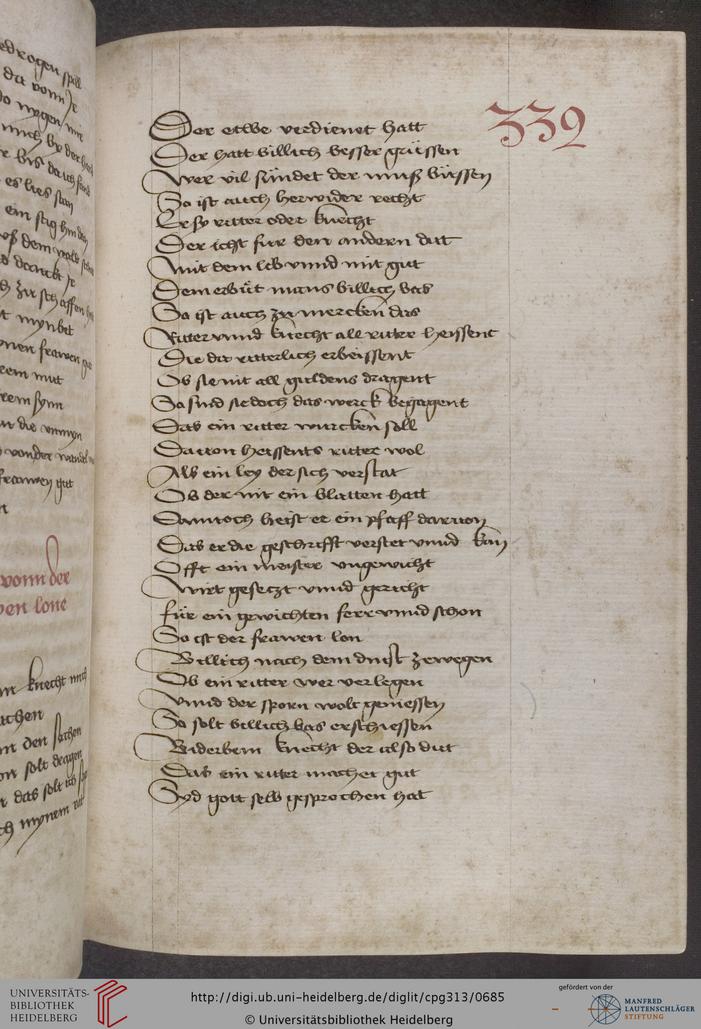 339
Der etwe verdienet hatt
Der hatt billich besser grüssen
Wer vil sündet der muß büssen
So ist auch herwider recht
Er sy ritter oder knecht
Der icht für den andern dut
Mit dem lib vnnd mit gut
Dem erbüt mans billich bas
So ist auch zu mercken das
Ritter vnnd knecht all ritter heissent
Die da ritterlich erbeissent
Ob sie nit all guldens draggent
So sind sie doch das werck begagent
Das ein ritter wurcken soll
Dauon heissents ritter wol
Als ein ley der sich verstat
Ob der nit ein blatten hatt
Dannoch heist er ein pfaff daruon
Das er die geschrifft verstet vnnd kan
Offt ein meister vngewicht
Wirt gesetzt vnnd gericht
Für ein gewichten ferr vnnd schon
So ist der frawen lon
Billich nach dem dinst zewegen
Ob ein ritter wer verlegen
Vnnd der sporn wolt geniessen
So solt billich bas erschiessen
Biderbem knecht der also dut
Das ein ritter machet gut
Syd gott selb gesprochen hat
vonn der
lone
frawen gut
knecht
solt
mynem
UNIVERSITÄTS-
BIBLIOTHEK
HEIDELBERG
http://digi.ub.uni-heidelberg.de/diglit/cpg313/0685
© Universitätsbibliothek Heidelberg
gefördert von der
MANFRED
LAUTENSCHLÄGER
STIFTUNG